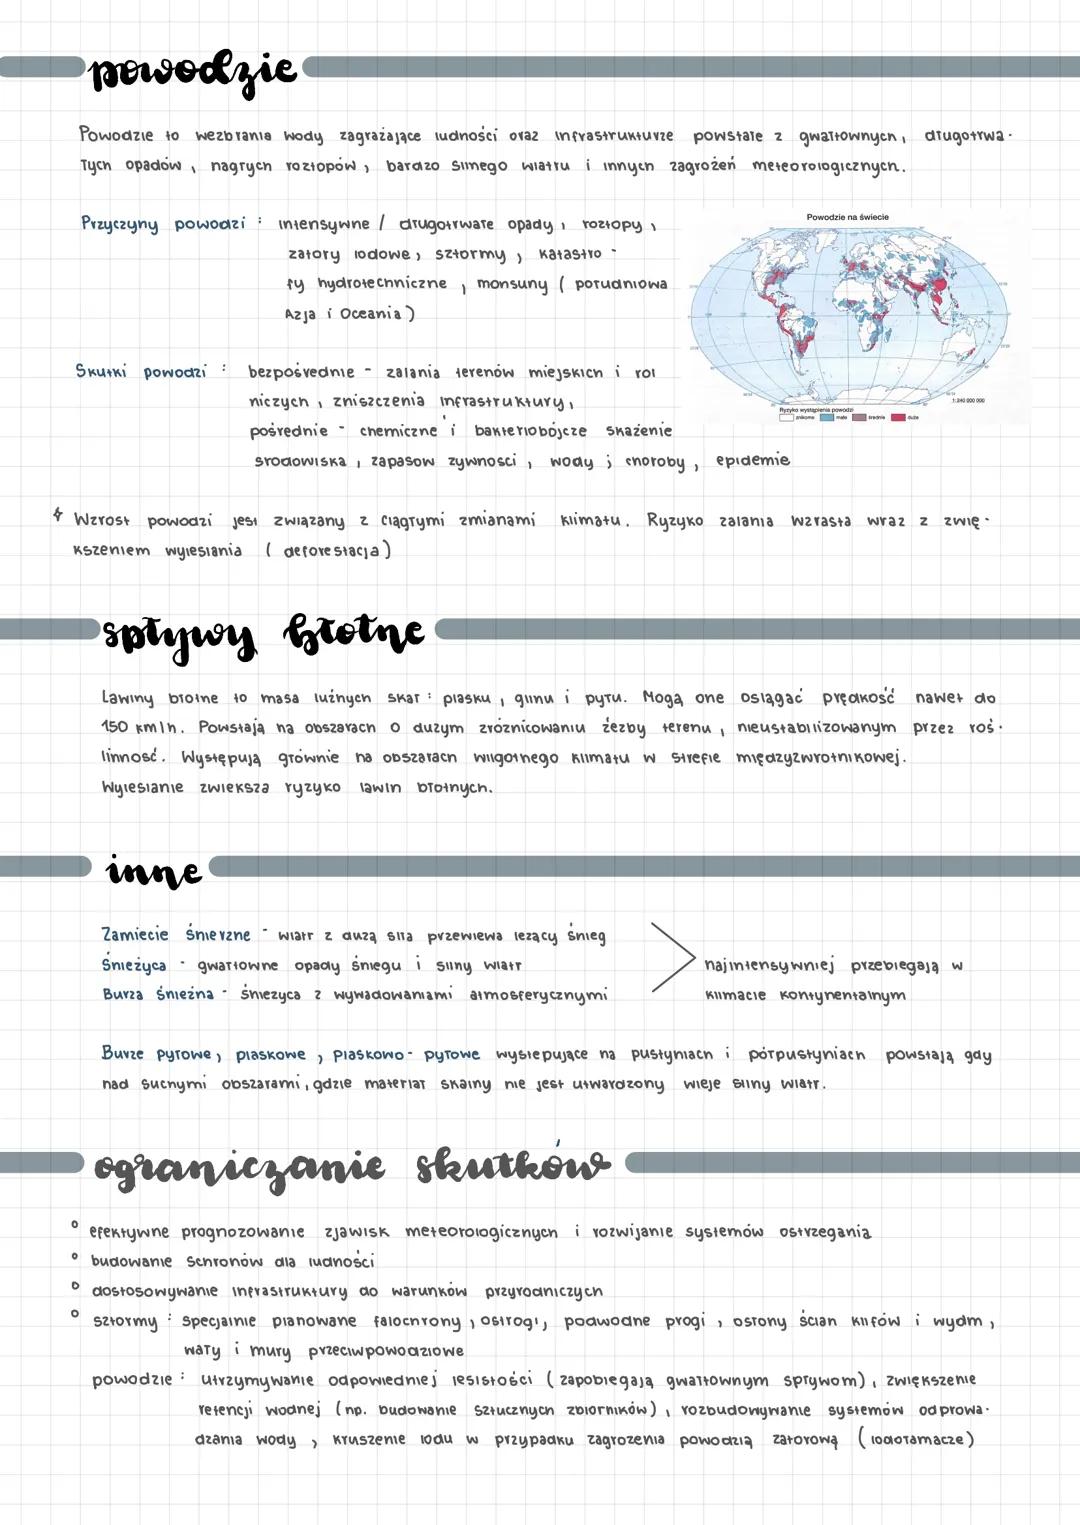 powodzie
Powodzie to wezbrania wody zagrażające ludności oraz infrastrukturze powstałe z gwałtownych, długotrwa-
łych opadów, nagłych roztopów, bardzo silnego wiatru i innych zagrożeń meteorologicznych.
Przyczyny powodzi: intensywne / długotrwałe opady, roztopy,
zatory lodowe, sztormy, katastro-
fy hydrotechniczne, monsuny (południowa
Azja i Oceania)
Powodzie na świecie
1:240 000 000
Ryzyko wystąpienia powodzi
znikome małe średnie duże
Skutki powodzi: bezpośrednie - zalania terenów miejskich i rol
niczych, zniszczenia infrastruktury,
pośrednie - chemiczne i bakteriobójcze skażenie
środowiska, zapasow żywności, wody; choroby, epidemie
Wzrost powodzi jest związany z ciągłymi zmianami klimatu. Ryzyko zalania wzrasta wraz z zwię-
kszeniem wylesiania (deforestacja)
spływy błotne
Lawiny błotne to masa luźnych skał: piasku, gliny i pyłu. Mogą one osiągać prędkość nawet do
150 km/h. Powstają na obszarach o dużym zróżnicowaniu źeźby terenu, nieustabilizowanym przez roś-
linność. Występują głównie na obszarach wilgotnego klimatu w strefie międzyzwrotnikowej.
Wylesianie zwiększa ryzyko lawin błotnych.
inne
Zamiecie śnieżne - wiatr z dużą siła przewiewa leżący śnieg
Śnieżyca - gwałtowne opady śniegu i silny wiatr
Burza śnieżna - śnieżyca z wyładowaniami atmosferycznymi
najintensywniej przebiegają w
klimacie kontynentalnym
Burze pyłowe, piaskowe, piaskowo-pyłowe występujące na pustyniach i półpustyniach powstają gdy
nad suchymi obszarami, gdzie materiał skalny nie jest utwardzony wieje silny wiatr.
ograniczanie skutków
° efektywne prognozowanie zjawisk meteorologicznych i rozwijanie systemów ostrzegania
° budowanie schronów dla ludności
° dostosowywanie infrastruktury do warunków przyrodniczych
° sztormy: specjalnie planowane falochrony, ostrogi, podwodne progi, osłony ścian klifów i wydm,
wały i mury przeciwpowodziowe
powodzie: utrzymywanie odpowiedniej lesistości (zapobiegają gwałtownym spływom), zwiększenie
retencji wodnej (np. budowanie sztucznych zbiorników), rozbudowywanie systemów odprowa-
dzania wody, kruszenie lodu w przypadku zagrożenia powodzią zatorową (lodołamacze)